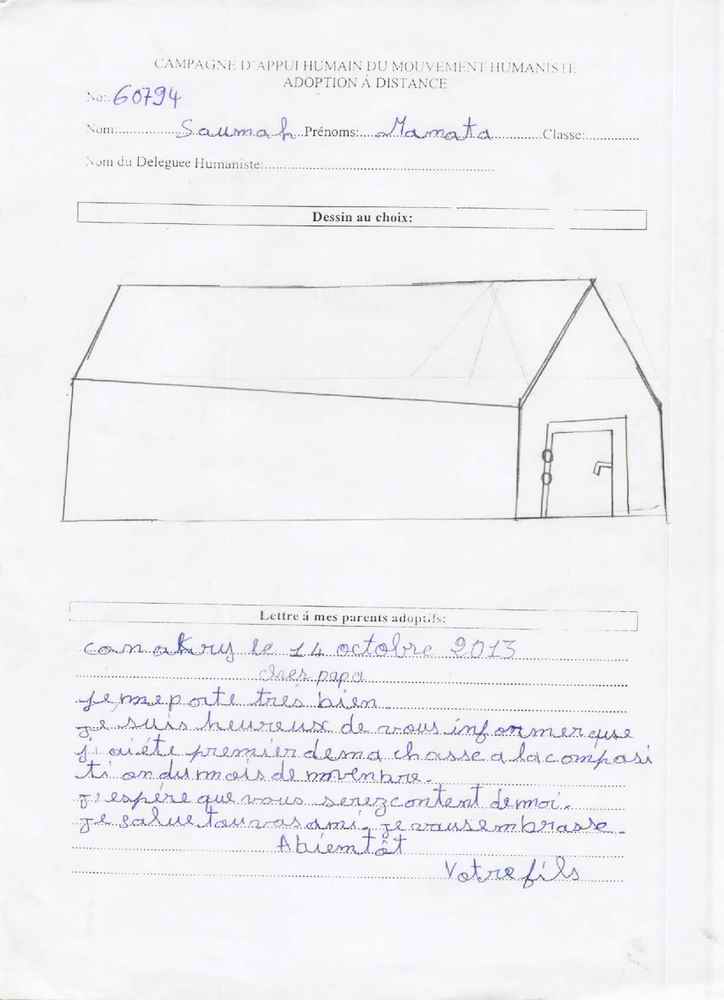 CAMPAGNE D'APPUI HUMAIN DU MOUVEMENT HUMANISTE
ADOPTION Á DISTANCE
No:.60794
Nom:................Saumah..Prénoms:....Mamata............Classe:..............
Nom du Deleguee Humaniste:...............................................................
Dessin au choix:
Lettre á mes parents adoptifs:
conakry le 14 octobre 2013
cher papa
je me porte très bien
je suis heureux de vous informer que
j'ai été premier de ma chasse a la composi
ti on du mois de novenbre.
j'espére que vous serez content de moi.
je salue tous vos ami. je vous embrasse.
A biemtôt
Votre fils